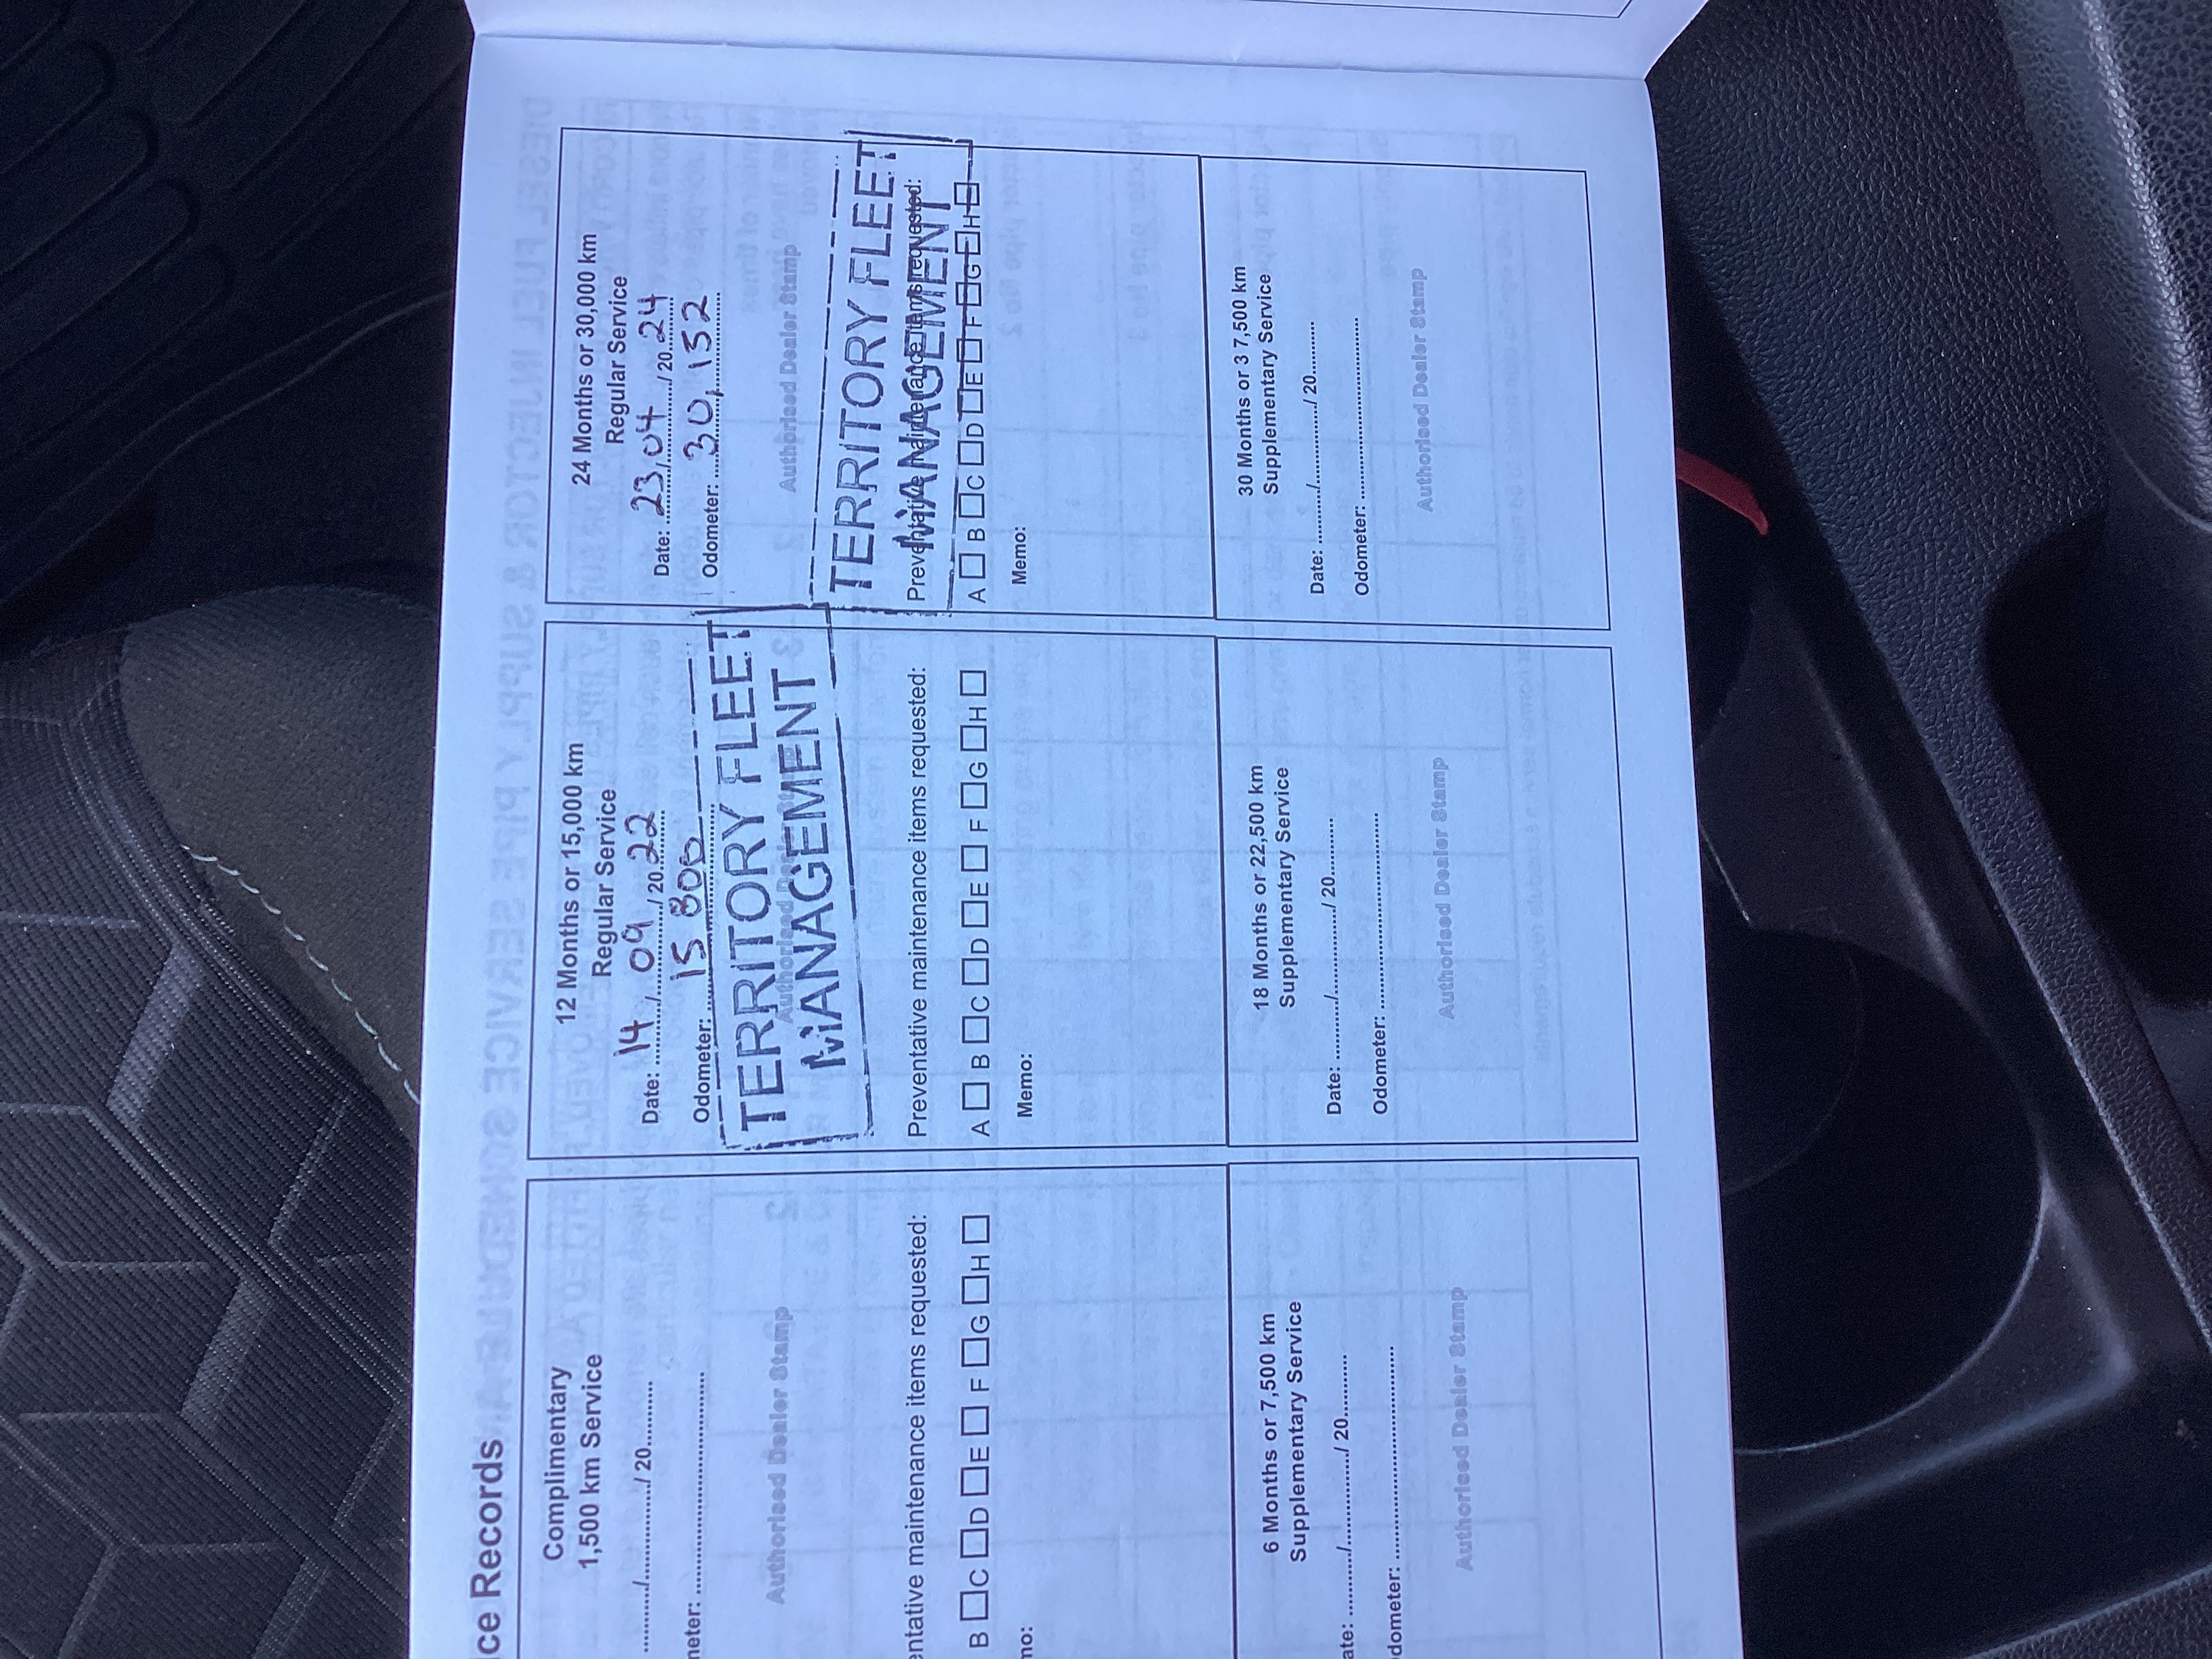 ce Records
Complimentary
1,500 km Service
........../................../ 20..........
neter: ........................................
Authorised Dealer Stamp
entative maintenance items requested:
B □ C □ D □ E □ F □ G □ H □
mo:
6 Months or 7,500 km
Supplementary Service
ate: ........../................../ 20..........
dometer: ........................................
Authorised Dealer Stamp
12 Months or 15,000 km
Regular Service
Date: 14 / 09 / 20 22
Odometer: 15 800
Authorised Dealer Stamp
TERRITORY FLEET
MANAGEMENT
Preventative maintenance items requested:
A □ B □ C □ D □ E □ F □ G □ H □
Memo:
18 Months or 22,500 km
Supplementary Service
Date: ........../................../ 20..........
Odometer: ........................................
Authorised Dealer Stamp
24 Months or 30,000 km
Regular Service
Date: 23 / 04 / 20 24
Odometer: 30, 152
Authorised Dealer Stamp
TERRITORY FLEET
MANAGEMENT
Preventative maintenance items requested:
A □ B □ C □ D □ E □ F □ G □ H □
Memo:
30 Months or 3 7,500 km
Supplementary Service
Date: ........../................../ 20..........
Odometer: ........................................
Authorised Dealer Stamp